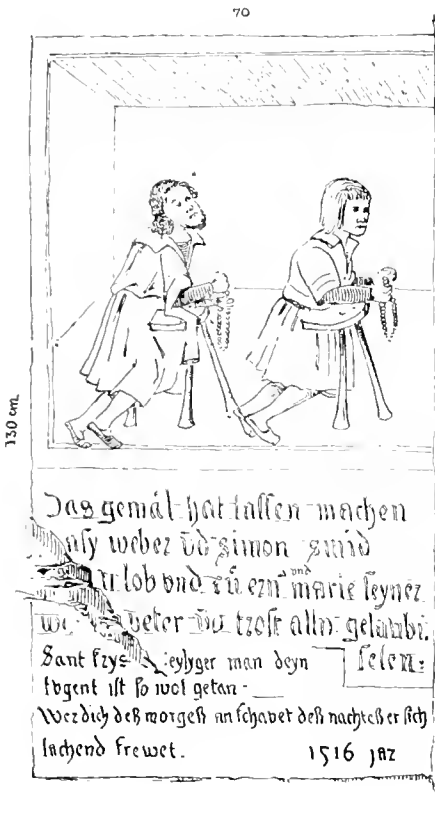 70
130 cm
Das gemäl hat lassen machen
weber vñd simon smid
zu lob vnd zů ern marie seyner
vnd
veter vñ trost alln gelaubi.
selen:
Sant Crys eylyger man deyn
tvgent ist so wol getan -
Wer dich deß morgeß an schavet deß nachteß er sich
lachend frewet.
1516 jaz